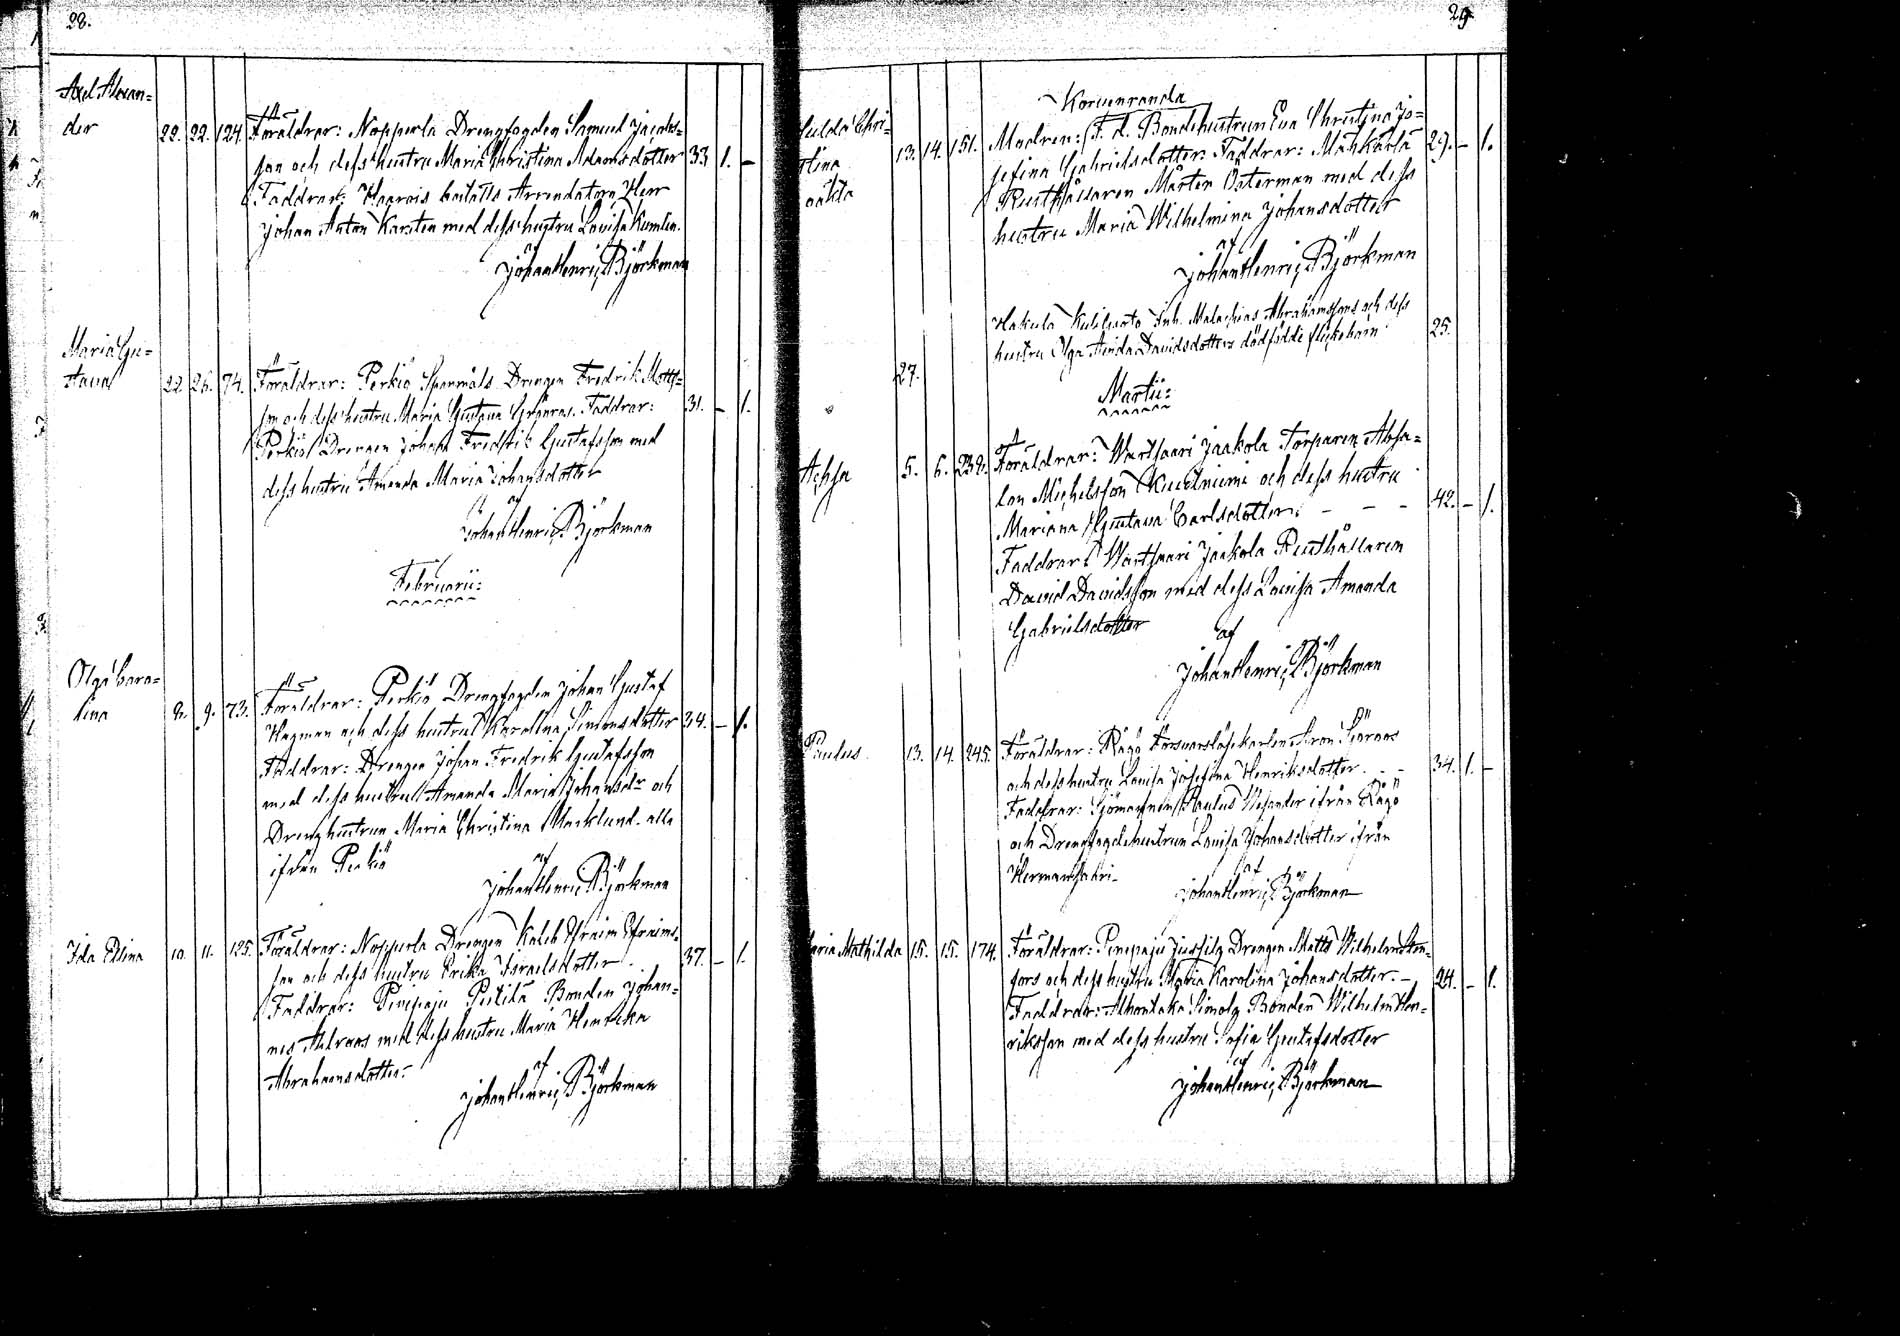 28.
Axel Alexan=
der 22. 22. 124. Föräldrar: Nopperla Drengfogden Samuel Jacobs=
son och dess hustru Maria Christina Adamsdotter 33 1. –
Faddrar: boställs Arrendatorn Herr
Johan Anton Karsten med dess hustru Lovisa Kumlin.
af
Johan Henric Björkman
Maria Gu=
stava 22. 26. 74. Föräldrar: Perkiö Drengen Fredrik Matts=
son och dess hustru Maria Gustava Grönroos. Faddrar: 31. – 1.
Perkiö Drengen Johan Fredrik Gustafsson med
dess hustru Amanda Maria Johansdotter
af
Johan Henric Björkman
Februarii:
Olga Caro=
lina 8. 9. 73. Föräldrar: Perkiö Drengfogden Johan Gustaf
Hagman och dess hustru Karolina Simonsdotter 34. – 1.
Faddrar: Drengen Johan Fredrik Gustafsson
med dess hustru Amanda Maria Johansdr och
Drenghustrun Maria Christina Marklund. alla
ifrån Perkiö
af
Johan Henric Björkman
Ida Elina 10. 11. 125. Föräldrar: Nopperla Drengen Kaleb Efraim Efraims=
son och dess hustru Erika Israelsdotter. 37. – 1.
Faddrar: Pinipaju Bonden Johan=
nes Ahlroos med dess hustru Maria Henrika
Abrahamsdotter.
af
Johan Henric Björkman
29
Korvenranda
Hulda Chri=
stina 13. 14. 151. Modren: F. d. Bondehustrun Eva Christina Jo=
oäkta
sefina Gabrielsdotter. Faddrar: 29. – 1.
Rusthållaren Mårten Österman med dess
hustru Maria Wilhelmina Johansdotter
af
Johan Henric Björkman
Hakula Inh. Malachias Abrahamssons och dess
hustru Olga Davidsdotters dödfödde flickobarn 25.
27.
Martii:
Achsa 5. 6. 232. Föräldrar: Wartsaari Jaakola Torparen Absa=
lon Michelsson Kuusniemi och dess hustru
Mariana Gustava Carlsdotter. – – – 42. – 1.
Faddrar: Wartsaari Jaakola Rusthållaren
David Davidsson med dess Lovisa Amanda
Gabrielsdotter
af
Johan Henric Björkman
Paulus. 13. 14. 245. Föräldrar: Rågö Försvarslöse karlen Aron Sjöroos
och dess hustru Lovisa Josefina Henriksdotter. – – 34. 1. –
Faddrar: Sjömannen Paulus Wesander ifrån Rågö
och Drengfogdehustrun Lovisa Johansdotter ifrån
Hermansaari.
af
Johan Henric Björkman
Maria Mathilda 15. 15. 174. Föräldrar: Pinipaju Jussila Drengen Matts Wilhelm Sten=
fors och dess hustru Maria Karolina Johansdotter. – 24. – 1.
Faddrar: Simola Bonden Wilhelm Hen=
riksson med dess hustru Sofia Gustafsdotter
af
Johan Henric Björkman